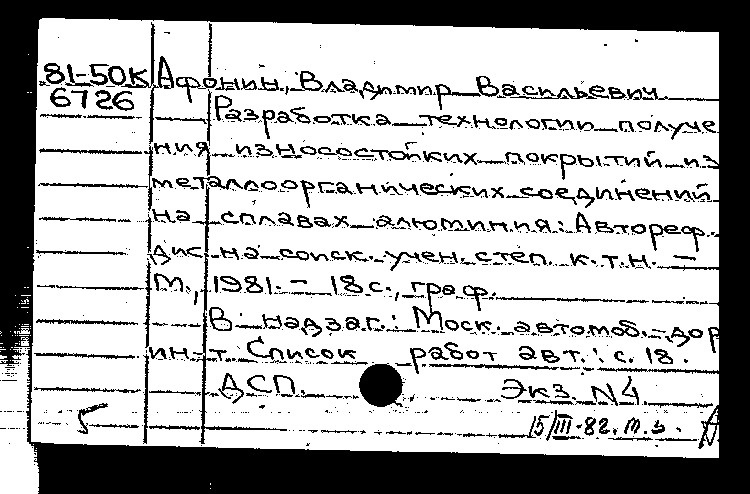 81-50К Афонин, Владимир Васильевич
6726 Разработка технологии получе
ния износостойких покрытий из
металлоорганических соединений
на сплавах алюминия: Автореф.
дис на соиск. учен. степ. к.т.н. –
М., 1981. – 18 с., граф.
В надзаг.: Моск. автомоб.-дор
ин-т. Список работ авт.: с. 18.
ДСП. Экз. N4
15/III-82. т.з.